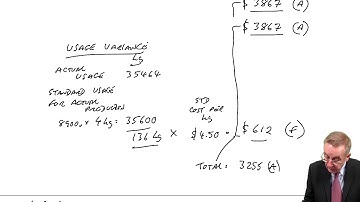 $ 3867 (A)
$ 3867 (A)
USAGE VARIANCE
Kg
ACTUAL
USAGE 35464
STANDARD USAGE
FOR ACTUAL
PRODUCTION
8900u x 4kg = 35600
136 kg x
STD
COST PER
kg
$4.50 = $ 612 (F)
TOTAL: 3255 (A)